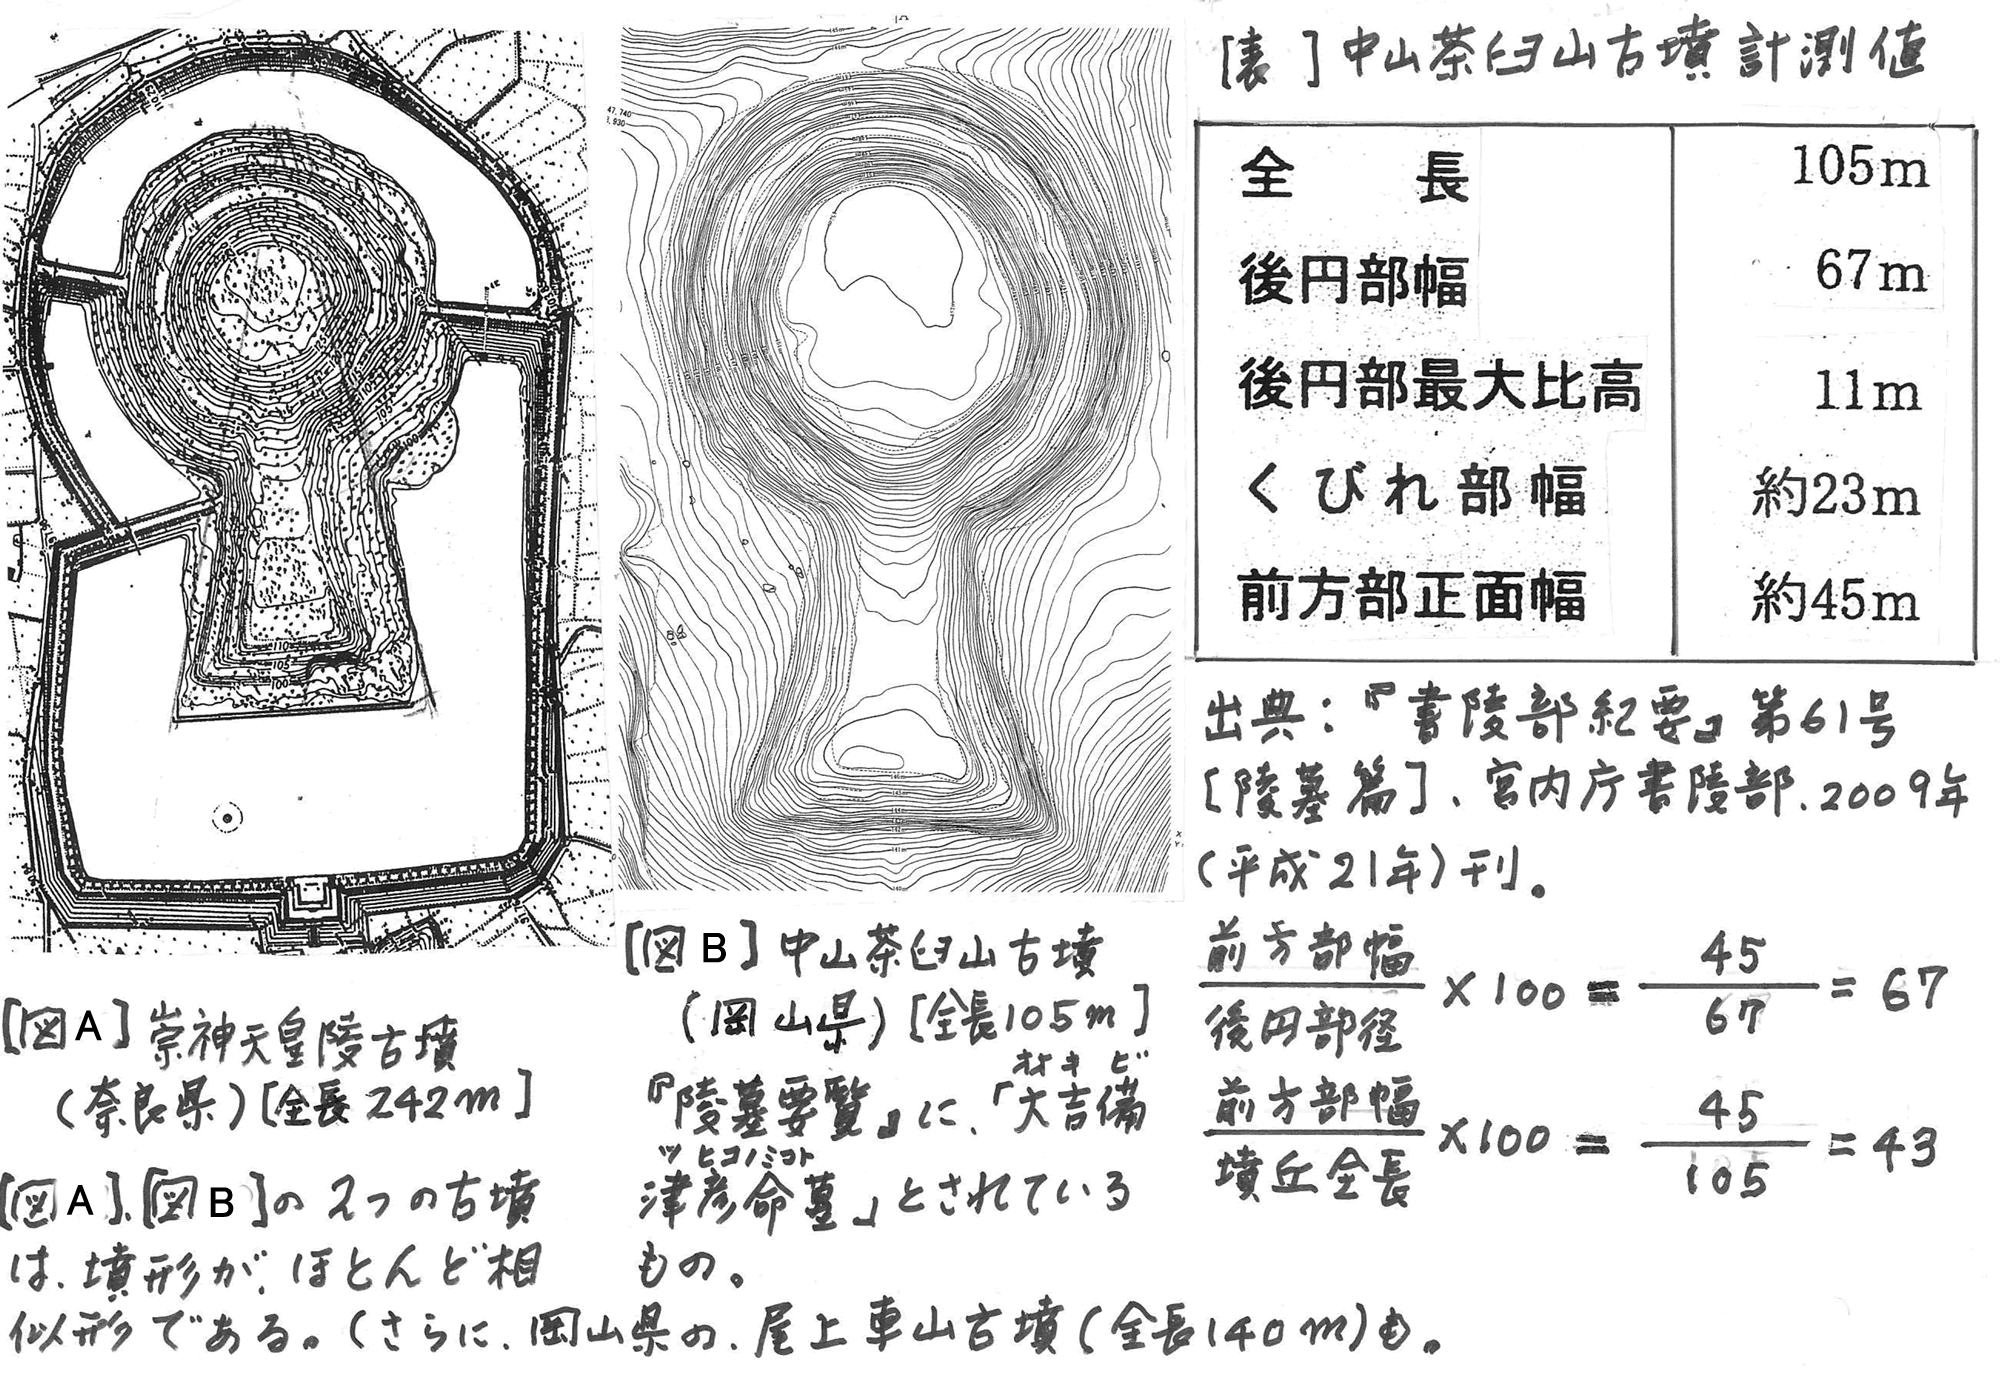 [表]中山茶臼山古墳計測値
全長 105m
後円部幅 67m
後円部最大比高 11m
くびれ部幅 約23m
前方部正面幅 約45m
出典:『書陵部紀要』第61号
[陵墓篇]、宮内庁書陵部、2009年
(平成21年)刊。
前方部幅/後円部径 ×100 = 45/67 = 67
前方部幅/墳丘全長 ×100 = 45/105 = 43
[図B]中山茶臼山古墳
(岡山県)[全長105m]
オオキビ
『陵墓要覧』に、「大吉備
ツヒコノミコト
津彦命墓」とされている
もの。
[図A]崇神天皇陵古墳
(奈良県)[全長242m]
[図A]、[図B]の2つの古墳
は、墳形が、ほとんど相
似形である。(さらに、岡山県の、尾上車山古墳(全長140m)も。
110
105
100